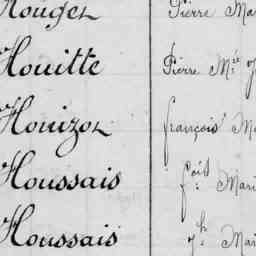 Rouget Pierre Ma
Houitte Pierre M.ie J
Houizot françois M
Houssais f.çois Mari
Houssais J.h Mari